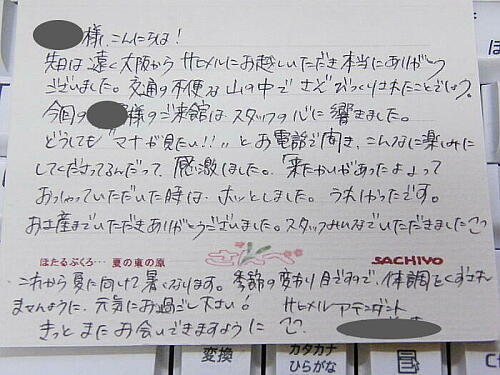 様、こんにちは！
先日は遠く大阪からサヒメルにお越しいただき本当にありがとう
ございました。交通の不便な山の中でさぞびっくりされたことでしょう。
今回の 様のご来館はスタッフの心に響きました。
どうしても"マナが見たい!!"とお電話で聞き、こんなに楽しみに
してくださってるんだって、感激しました。「来たかいがあったよ」って
おっしゃっていただいた時は、ホッとしました。うれしかったです。
お土産までいただきありがとうございました。スタッフみんなでいただきました
ほたるぶくろ… 夏の東の原
SACHIYO
これから夏に向けて暑くなります。季節の変わり目ですので、体調をくずされ
ませんように、元気にお過ごし下さい！ サヒメルアテンダント
きっとまたお会いできますように
変換
カタカナ
ひらがな